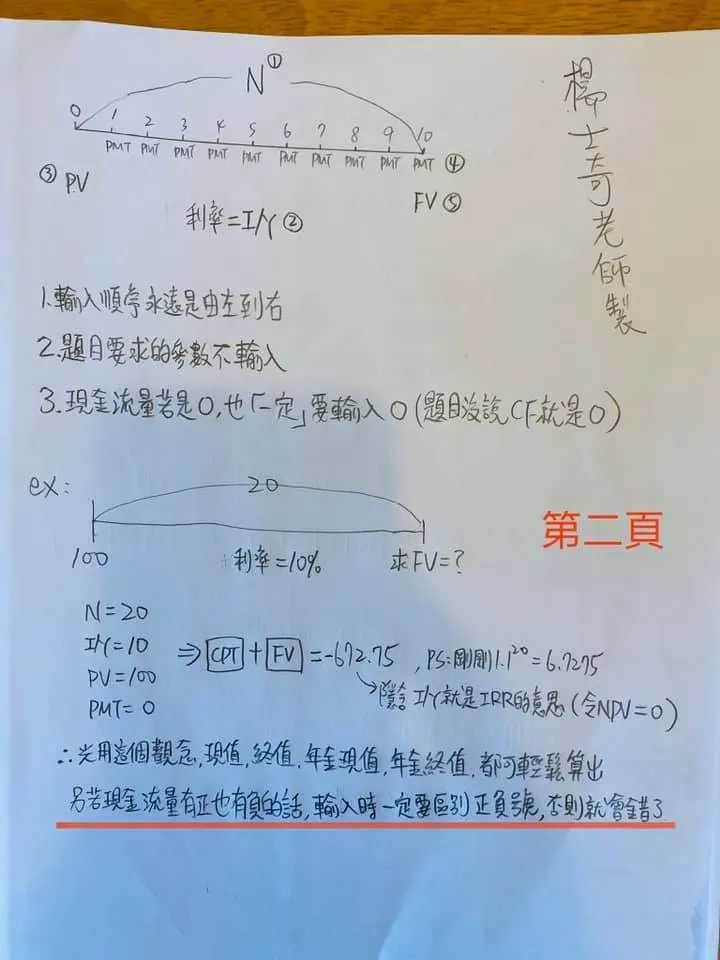 N①
0 1 2 3 4 5 6 7 8 9 10
PMT PMT PMT PMT PMT PMT PMT PMT PMT PMT ④
③ PV
FV ⑤
利率=I/Y ②
楊士奇老師製
1.輸入順序永遠是由左到右
2.題目要求的參數不輸入
3.現金流量若是0,也「一定」要輸入0(題目沒說CF就是0)
ex:
20
100 利率=10% 求FV=?
第二頁
N=20
I/Y=10
PV=100
PMT=0
⇒ CPT + FV =-672.75 , PS:剛剛1.1^20=6.7275
隱含 I/Y就是IRR的意思(令NPV=0)
∴光用這個觀念,現值,終值,年金現值,年金終值,都可輕鬆算出
另若現金流量有正也有負的話,輸入時一定要區別正負號,否則就會錯了